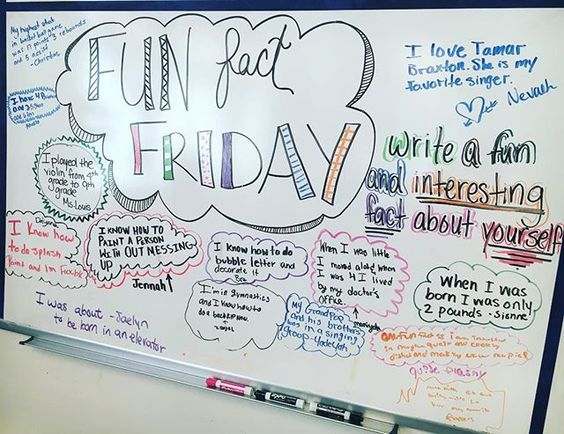 My highest stat
in basketball game
was 11 points 3 rebounds
and 5 assist
-Christian
I have 4
and 3
FUN fact
FRIDAY
I love Tamar
Braxton. She is my
favorite singer.
Nevaeh
write a fun
and interesting
fact about yourself
I played the
violin from 4th
grade to 9th
grade
Ms. Louis
I know how
to do splash
Paint and Im flexible
I KNOW HOW TO
PAINT A PERSON
WITH OUT MESSING
UP
Jennah
I know how to do
bubble letter and
decorate it
When I was little
I moved alot when
I was 4 I lived
by my doctor's
office.
When I was
born I was only
2 pounds - Sienne
I was about - Jaelyn
to be born in an elevator
I'm in Gymnastics
and I know how to
do a back
My Grand Pop
and his brothers
was in a singing
Group